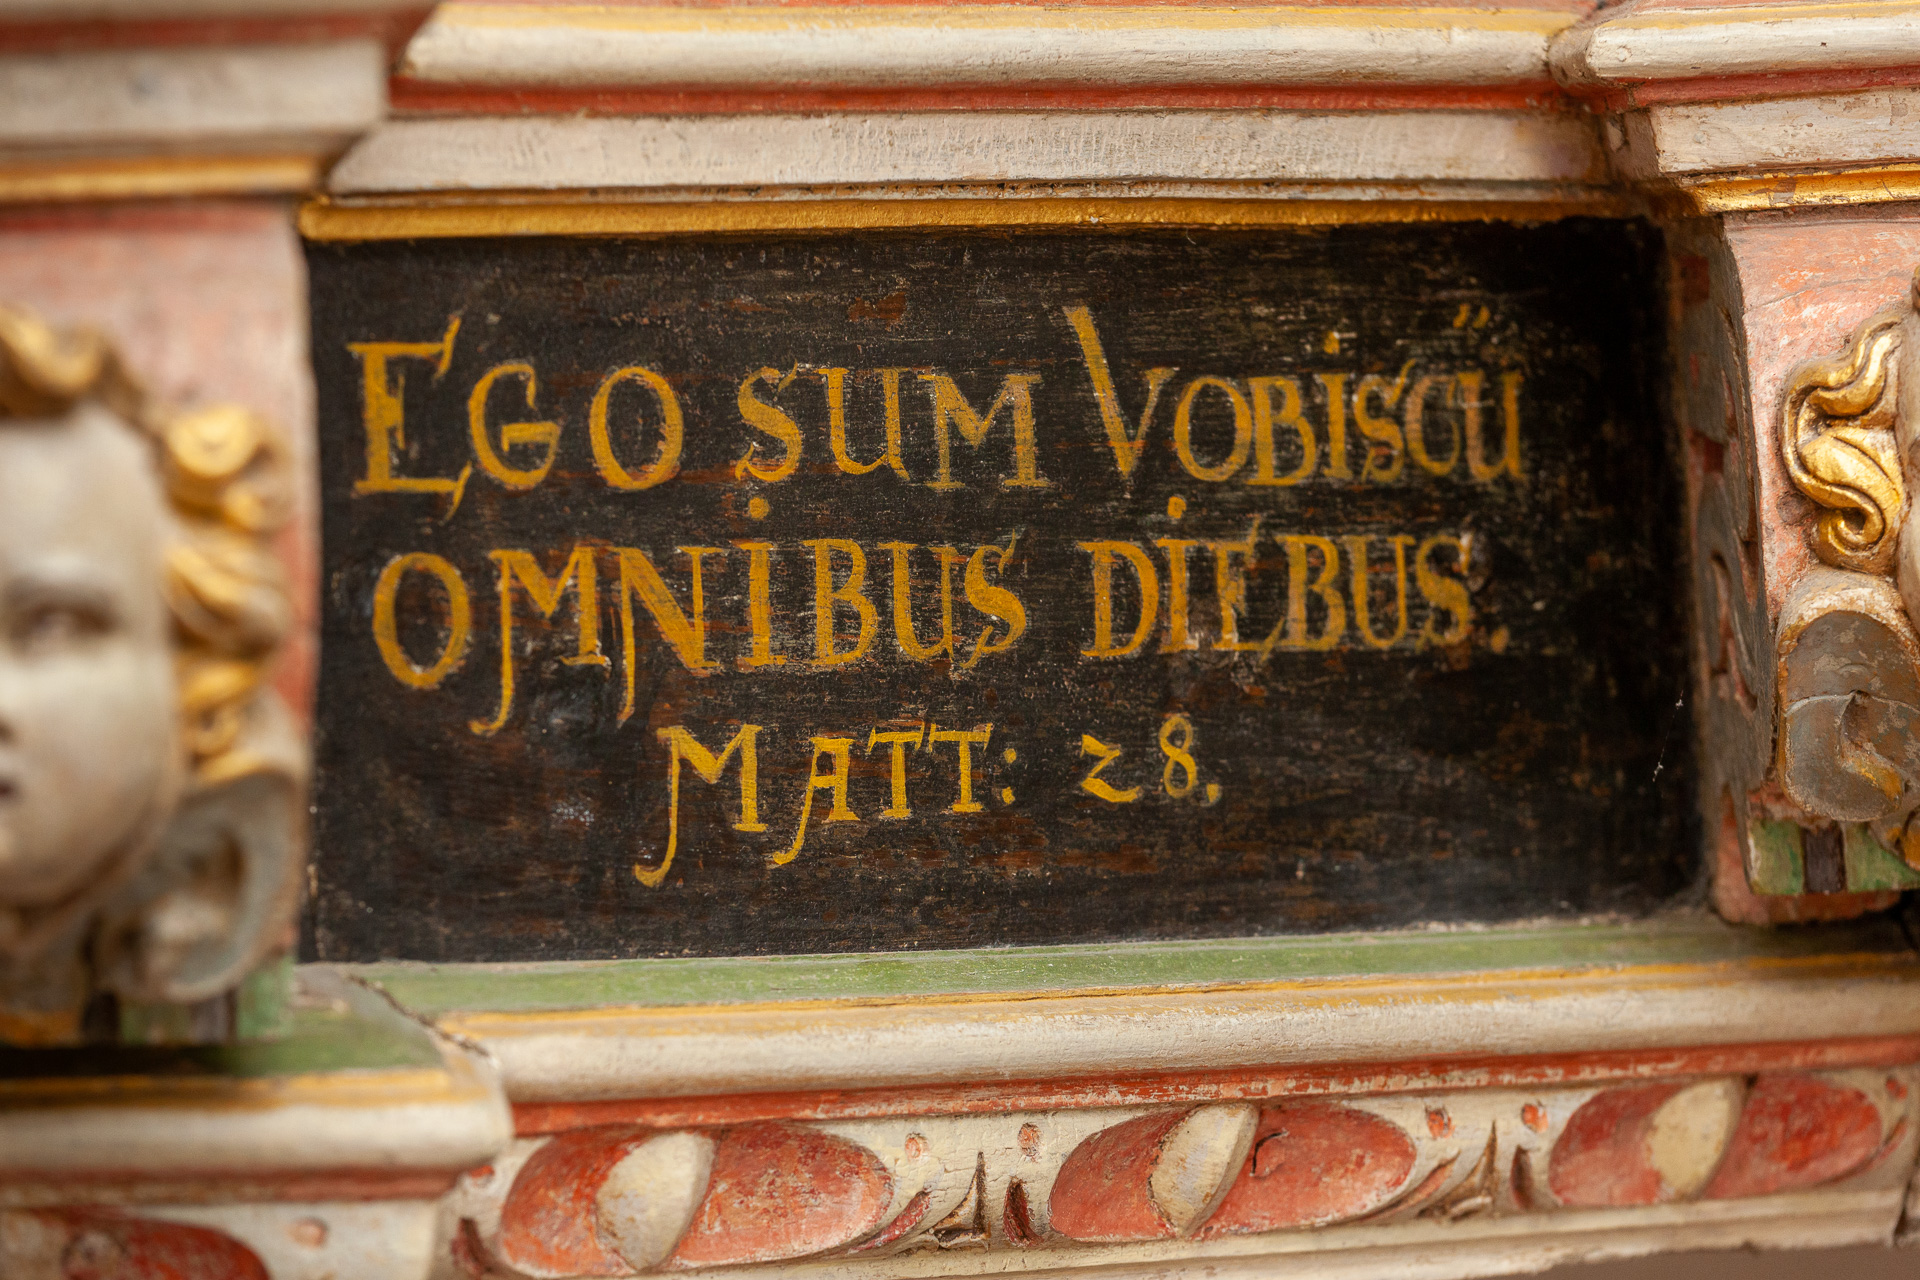 EGO SUM VOBISCŪ
OMNIBUS DIEBUS.
MATT: 28.